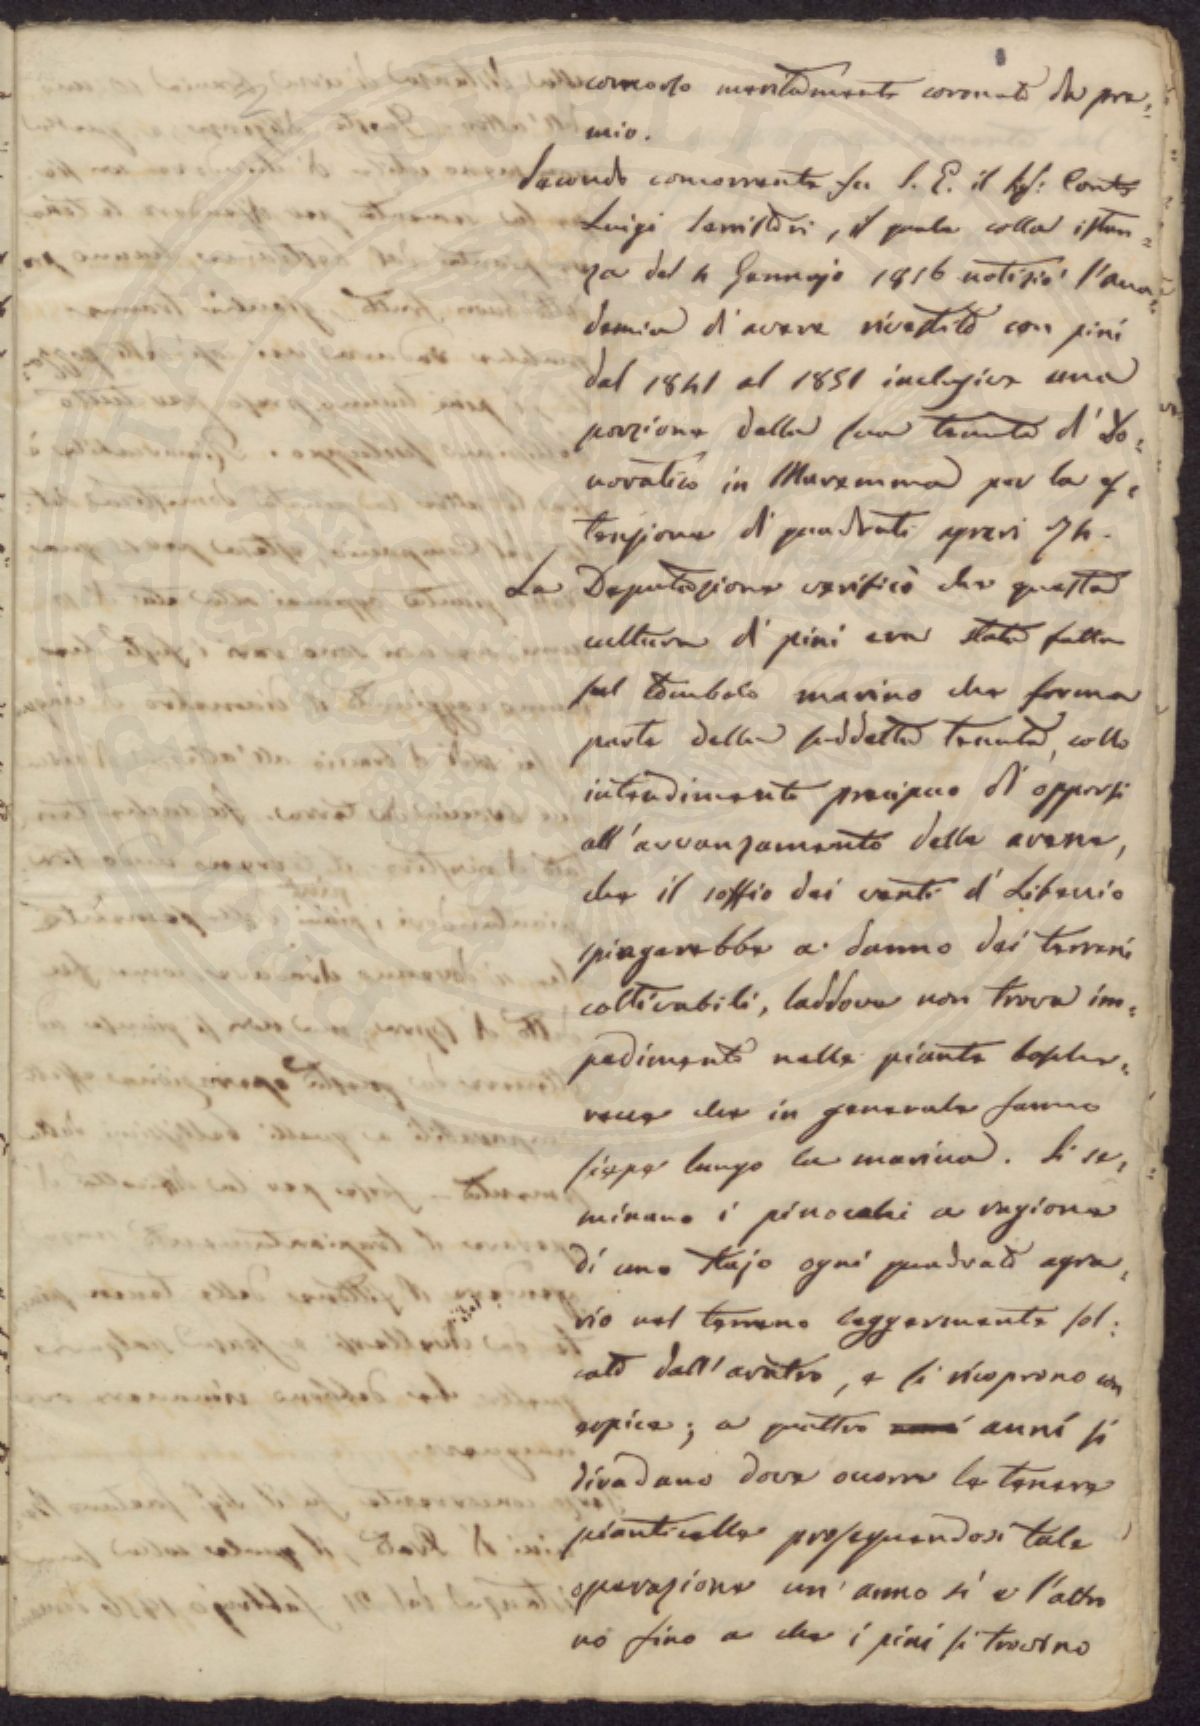 comodo meritamente coronato da pre=
mio.
Secondo concorrente fu S. E. il Sig: Conte
Luigi Serristori, il quale colla istan=
za del 4 Gennajo 1856 notiziò l'Acca=
demia d'avere rivestito con pini
dal 1841 al 1851 inclusive una
porzione della sua tenuta di Do=
noratico in Maremma per la es=
tensione di quadrati agrari 74.
La Deputazione verificò che questa
cultura di pini era stata fatta
sul tombolo marino che forma
parte della suddetta tenuta, collo
intendimento precipuo di opporsi
all'avvanzamento delle arene,
che il soffio dei venti di Libeccio
spingerebbe a danno dei terreni
coltivabili, laddove non trova im=
pedimento nelle piante bosche=
recce che in generale fanno
siepe lungo la marina. Si se=
minano i pinocchi a ragione
di uno stajo ogni quadrato agra=
rio nel terreno leggermente sol=
cato dall'aratro, e si ricoprono con
erpice; a quattro anni si
diradano dove occorre le tenere
pianticelle proseguendosi tale
operazione un'anno sì e l'altro
no fino a che i pini si trovino